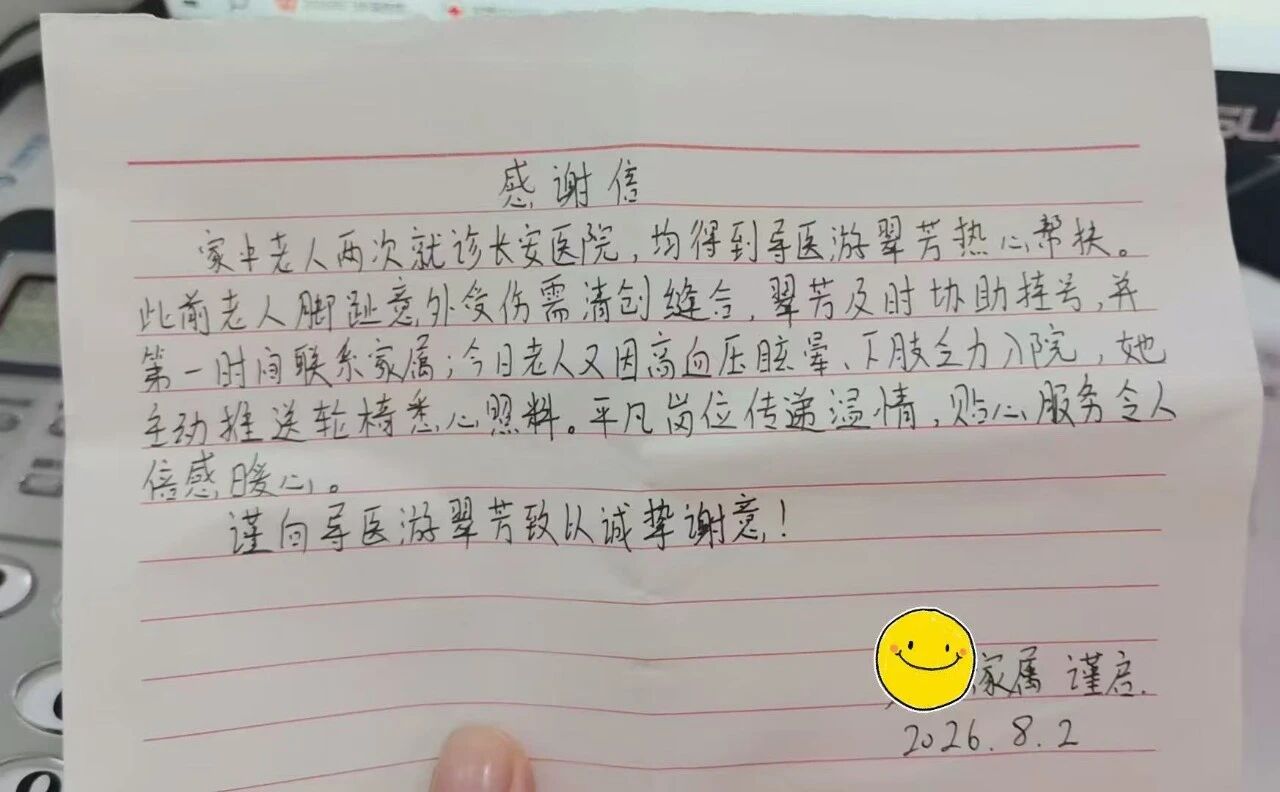 感谢信
家中老人两次就诊长安医院，均得到导医游翠芳热心帮扶。
此前老人脚趾意外受伤需清创缝合，翠芳及时协助挂号，并
第一时间联系家属；今日老人又因高血压眩晕、下肢乏力入院，她
主动推送轮椅悉心照料。平凡岗位传递温情，贴心服务令人
倍感暖心。
谨向导医游翠芳致以诚挚谢意！
家属 谨启.
2026.8.2